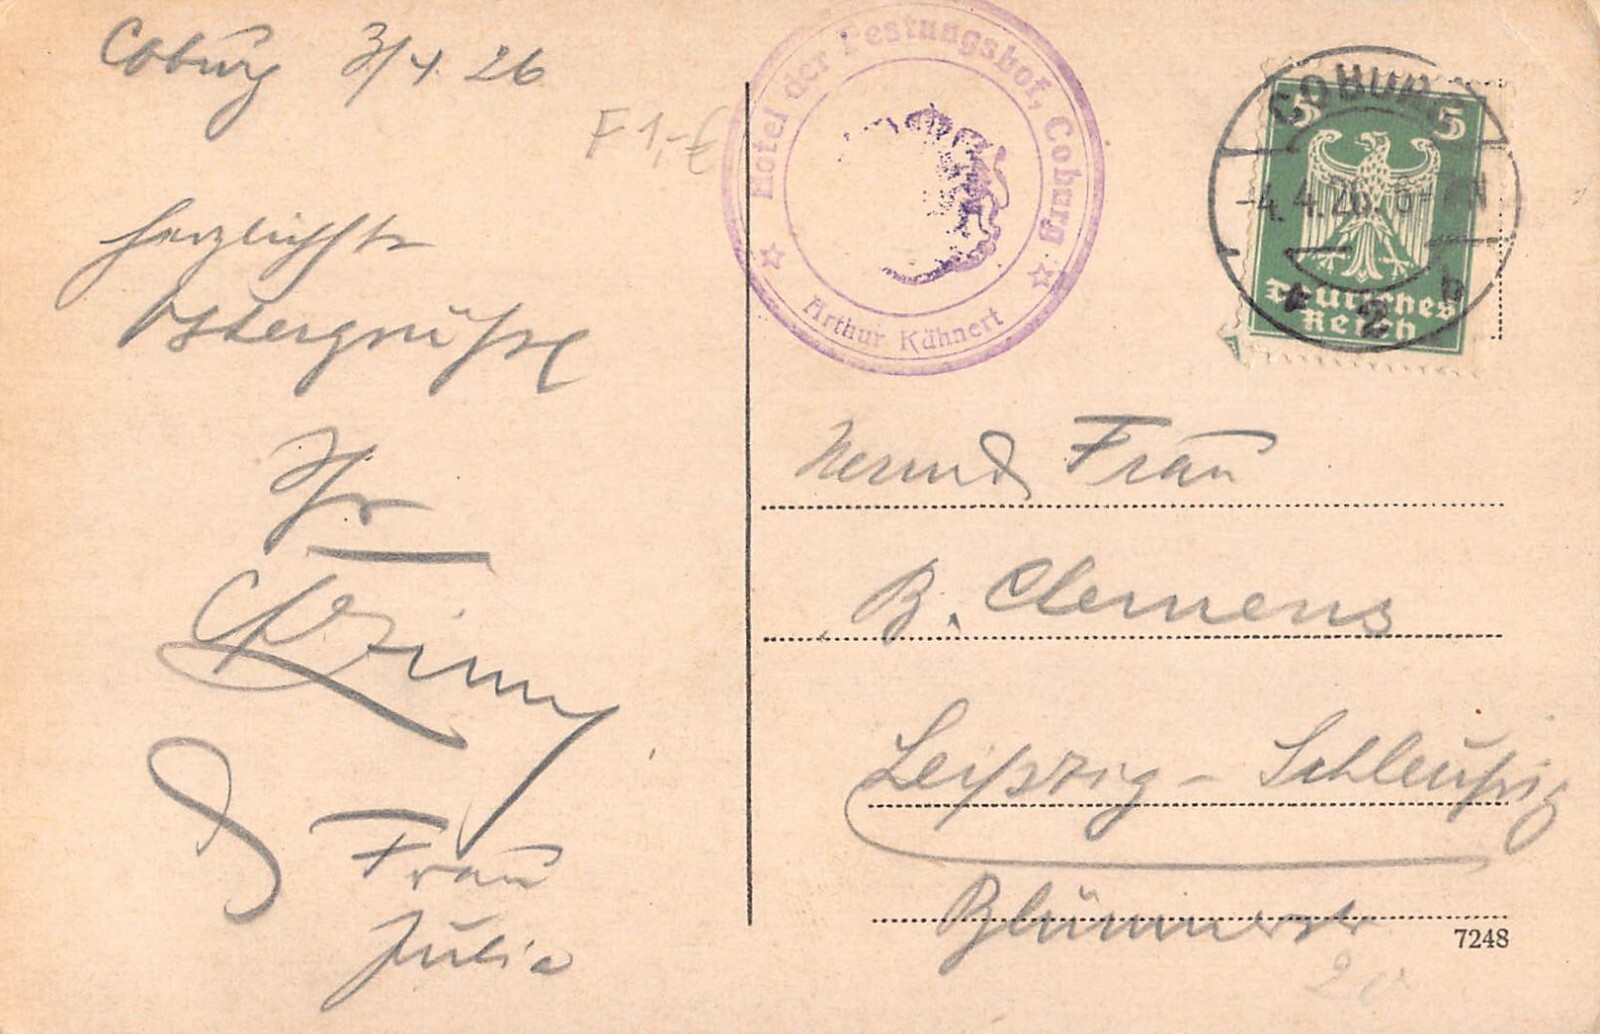 Coburg 3/4. 26
F 1,-€
Herzlichste
Ostergrüße
Ihr
& Frau
Julia
Hotel der Festungshof, Coburg
Arthur Kähnert
COBURG
-4.4.26. 6-
* 2 b
5 5
Deutsches
Reich
Frau
B. Clemens
Leipzig - Schleußig
Blümnerstr
7248